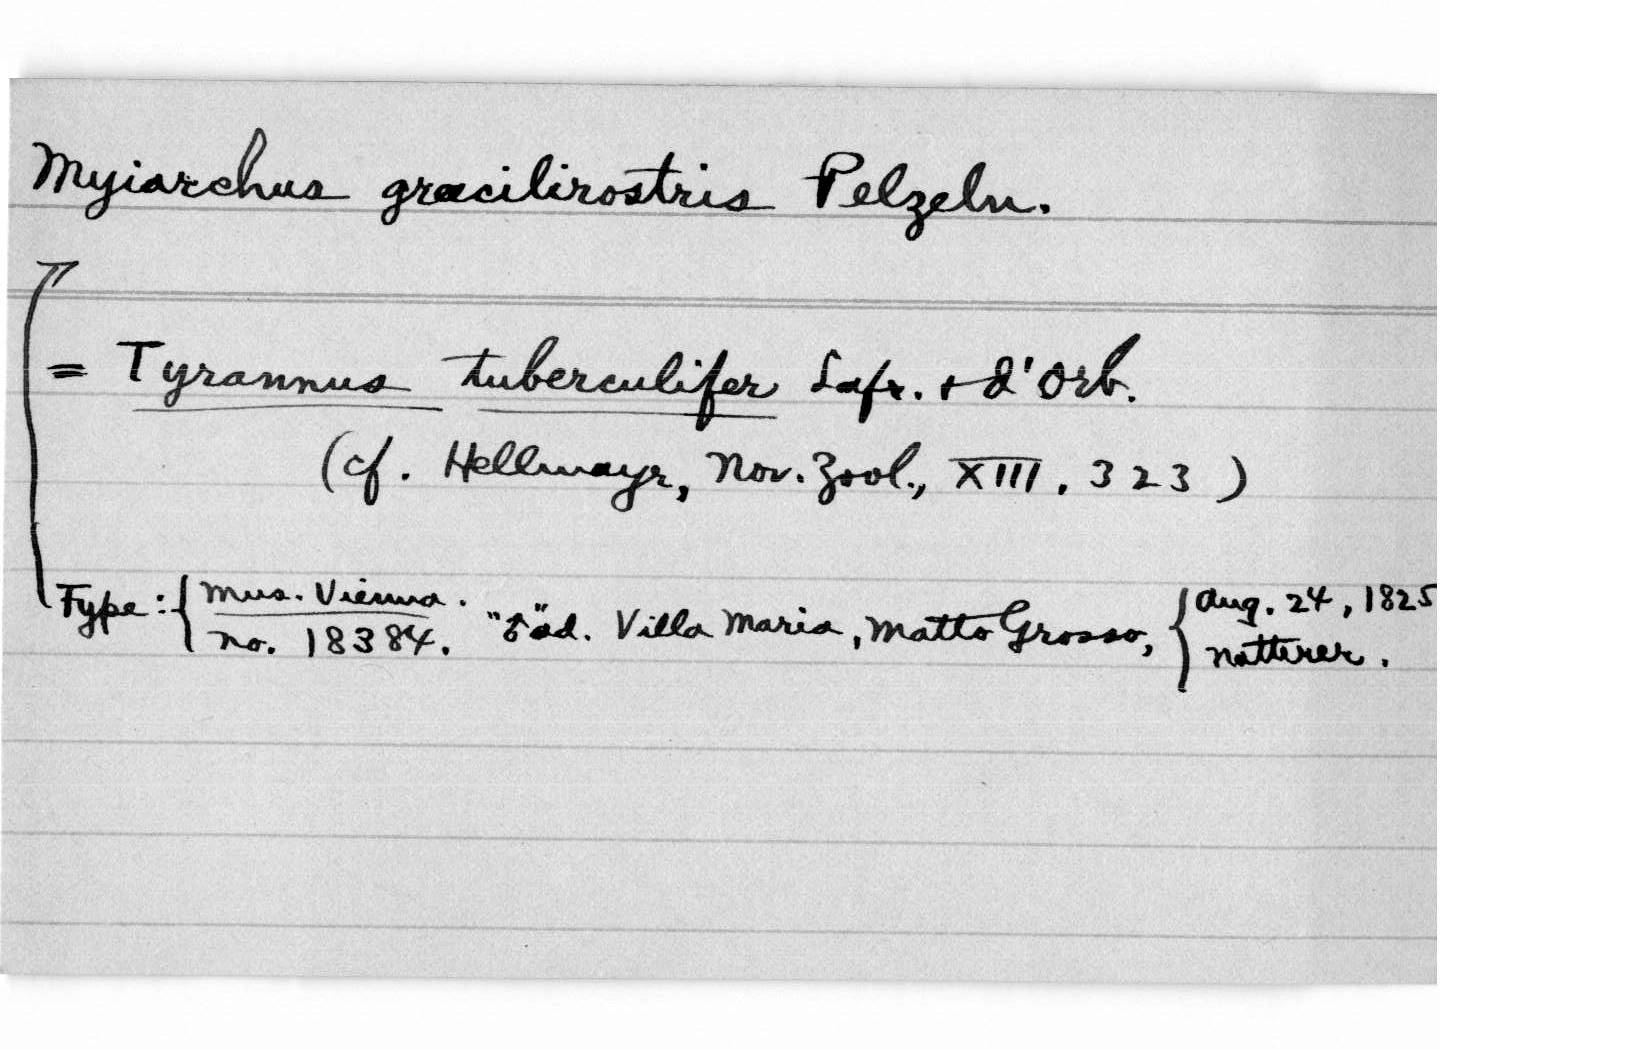 Myiarchus gracilirostris Pelzeln.
= Tyrannus tuberculifer Lafr. + d'Orb.
(cf. Hellmayr, Nov. Zool., XIII, 323)
Type: { Mus. Vienna.
No. 18384. "♂" ad. Villa Maria, Matto Grosso, { Aug. 24, 1825
Natterer.